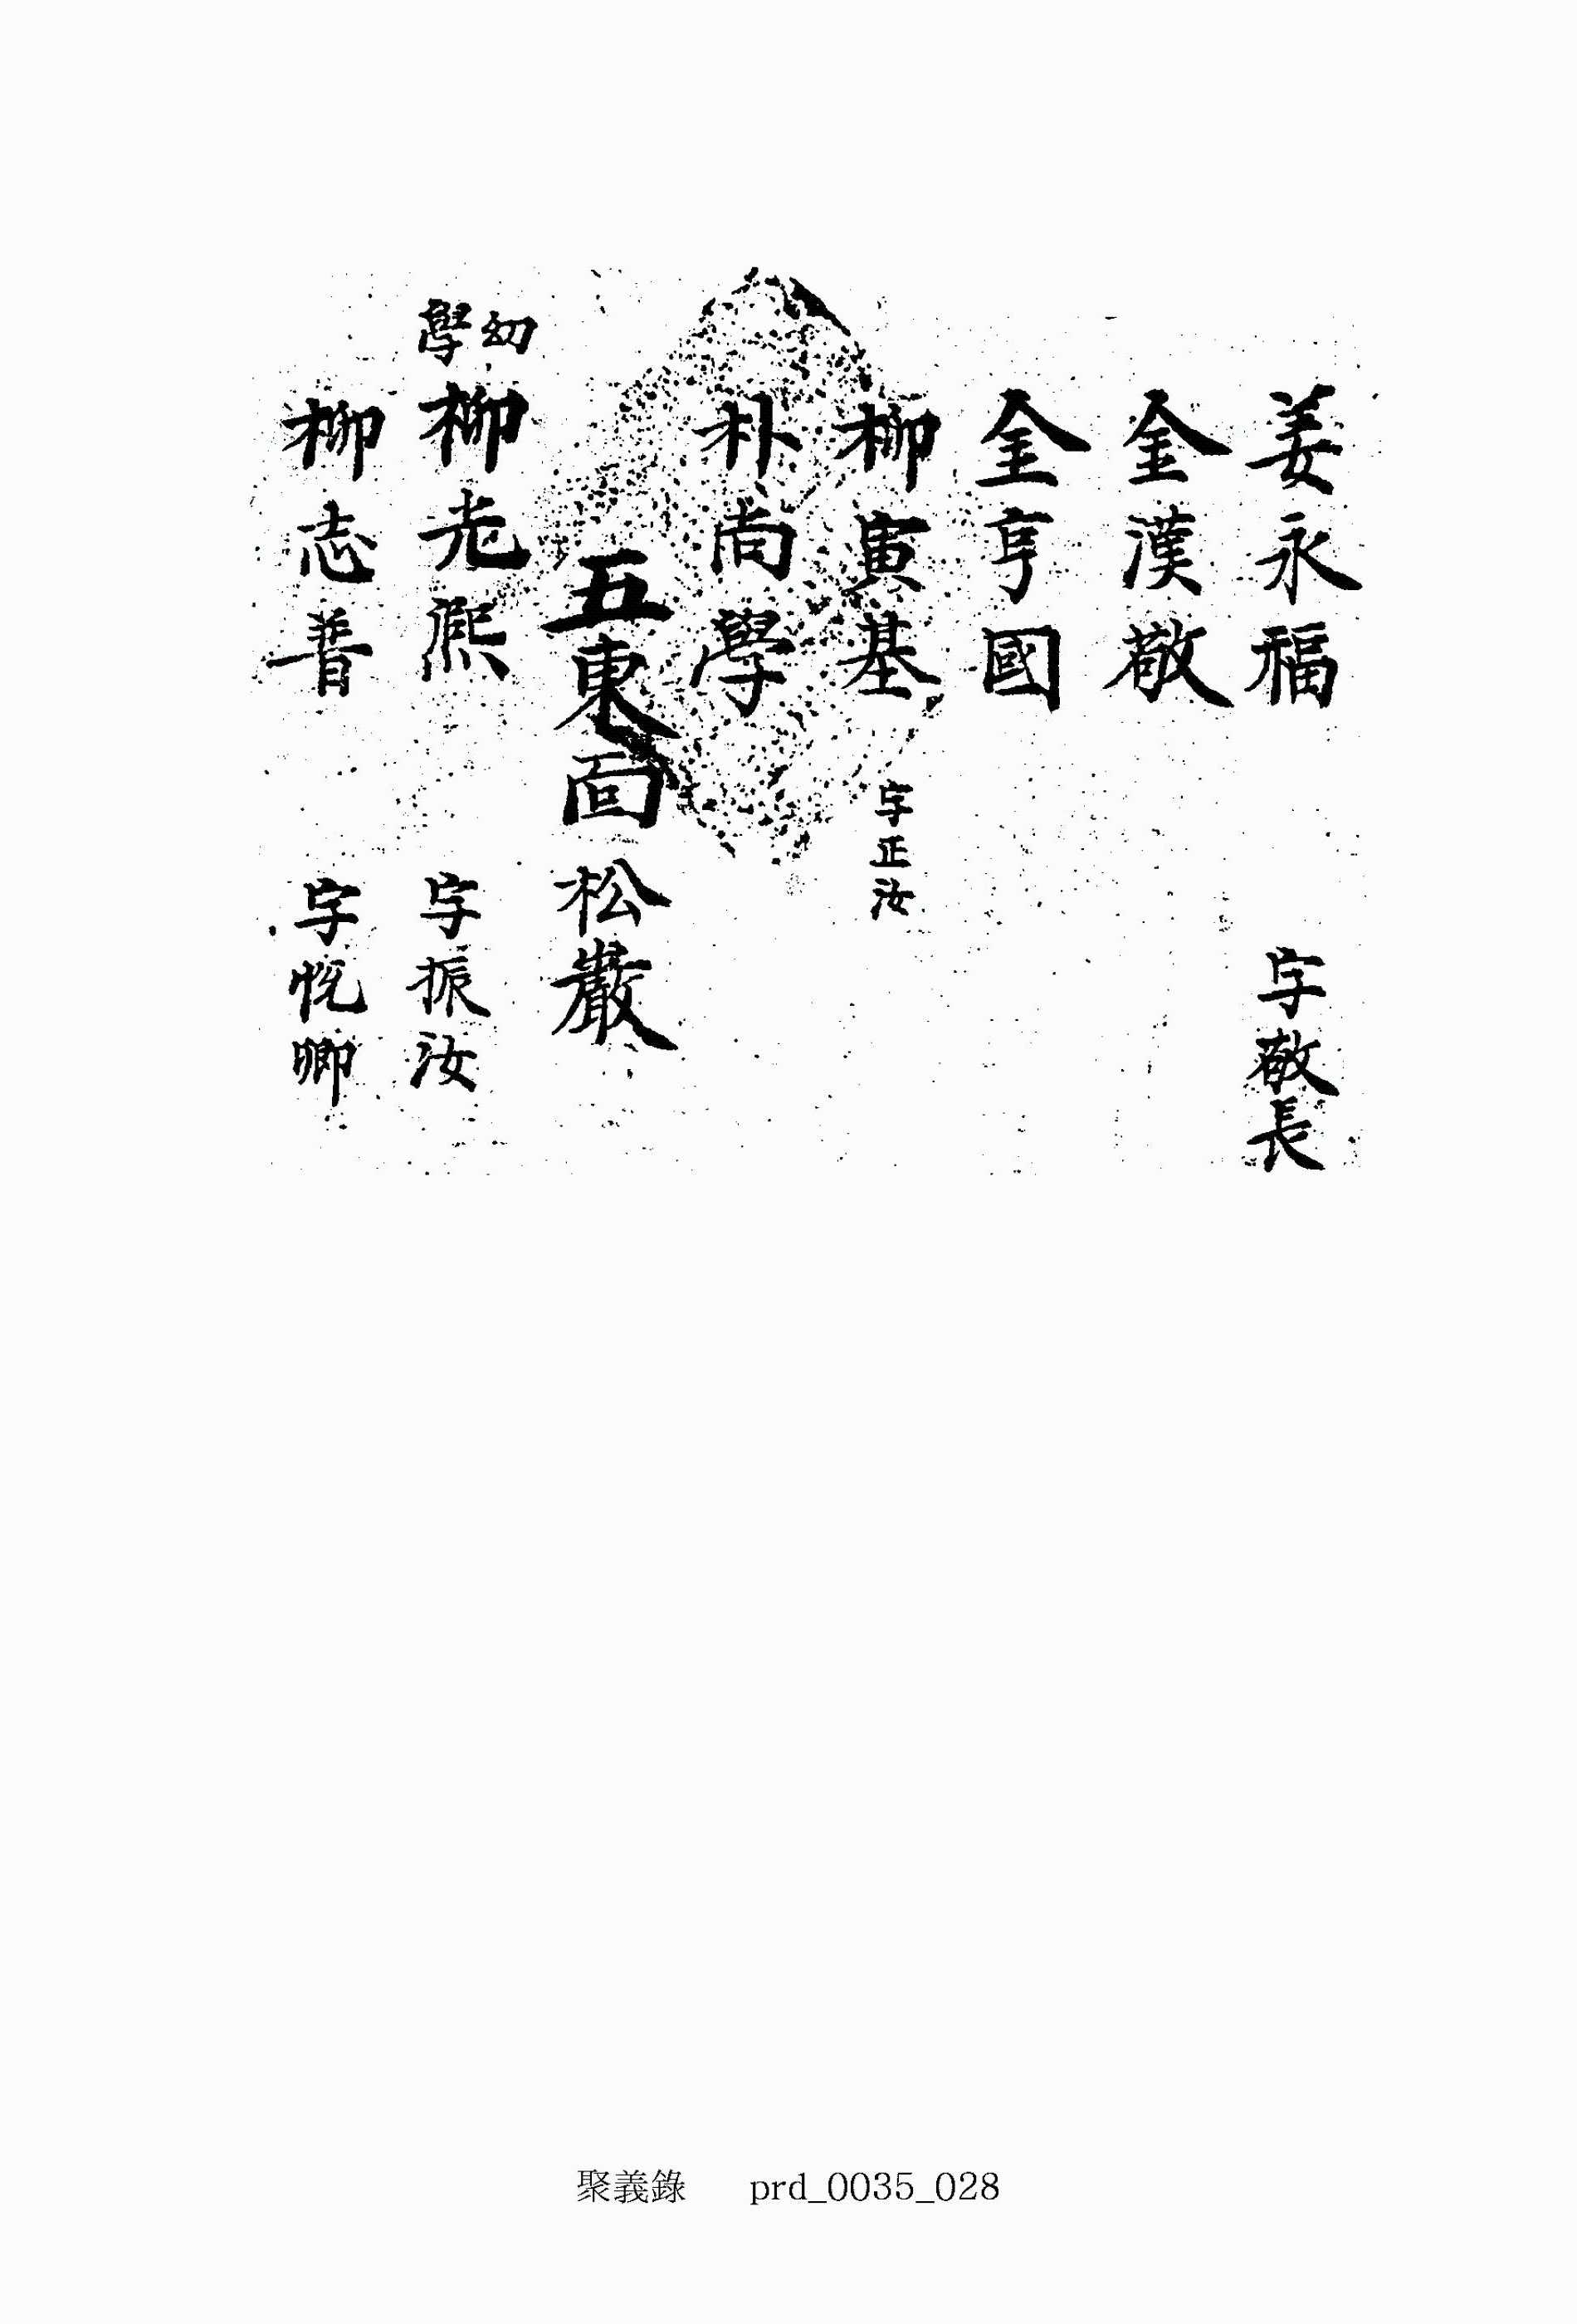 姜永福 字敬長
金漢敬
金亨國
柳寅基 字正汝
朴尚學
五東面 松巖
幼學 柳光熙 字振汝
柳志普 字悅卿
聚義錄 prd_0035_028